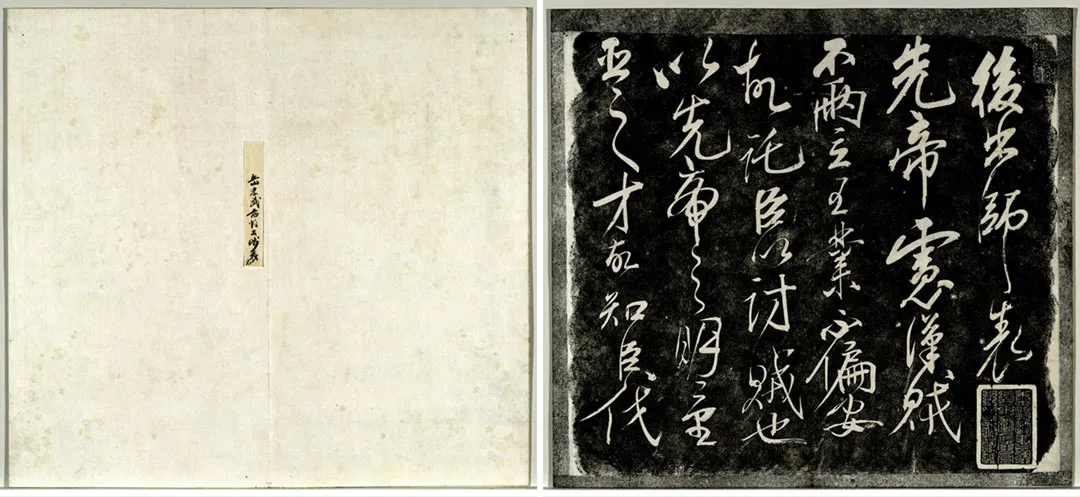 岳忠武書出師表
後出師表
先帝慮漢賊
不兩立王業不偏安
故託臣以討賊也
以先帝之明量
臣之才故知臣伐